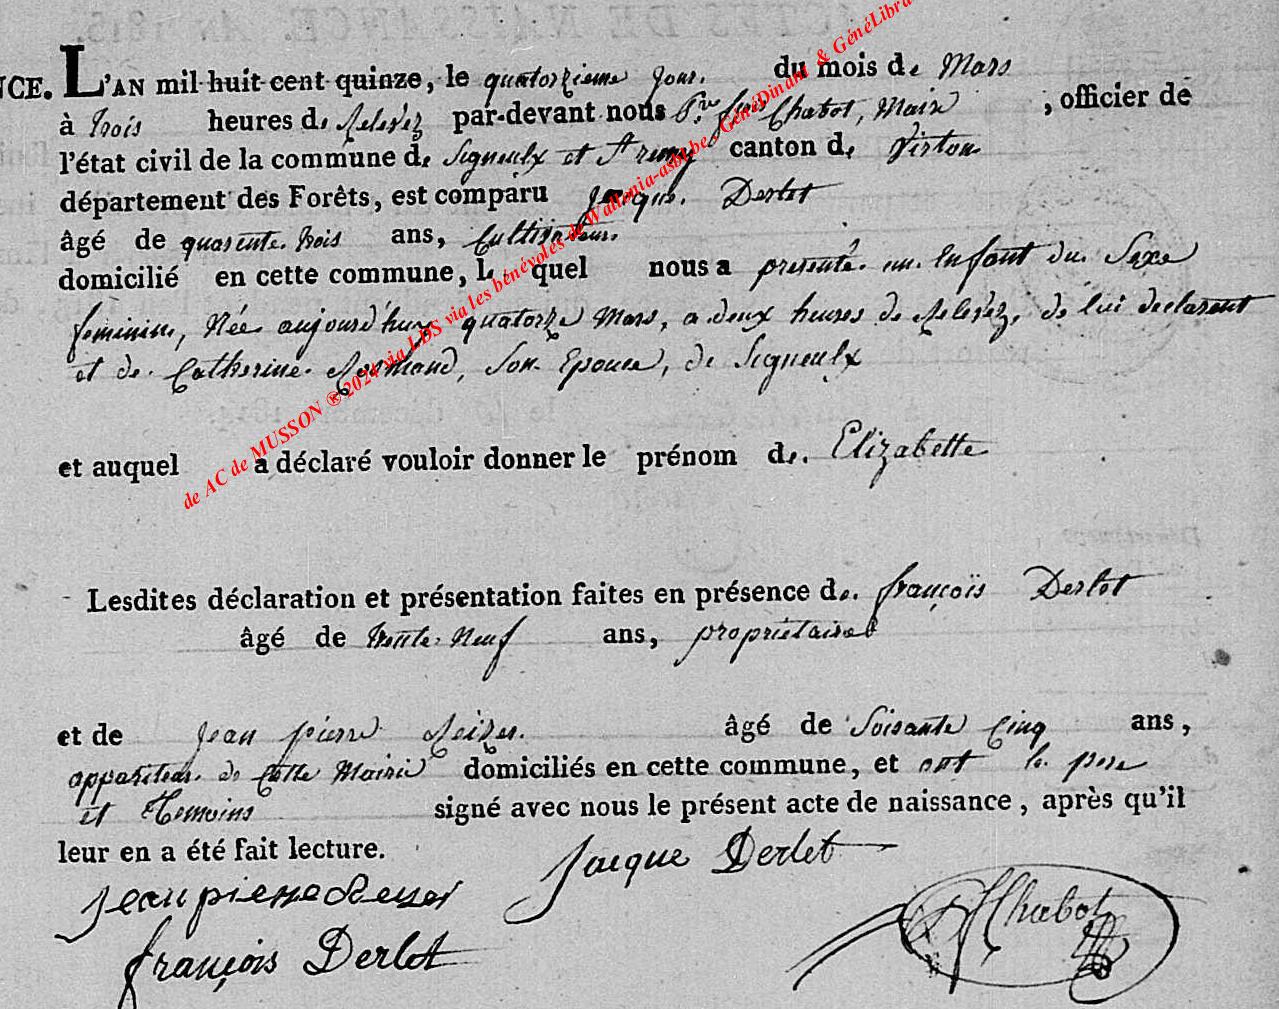 NCE. L'AN mil huit cent quinze, le quatorzieme jour. du mois de Mars
à trois heures de Relevéz par-devant nous Pre. frois Chabot, Maire , officier de
l'état civil de la commune de Signeulx et St remy canton de Virton
département des Forêts, est comparu Jacque Derlet
âgé de quarente trois ans, Cultivateur
domicilié en cette commune, L quel nous a presenté un Enfant du Sexe
feminin, Née aujourd'huy quatorze Mars, a deux heures de Relevéz, de lui declarent
et de Catherine, Son Epouse, de Signeulx
et auquel a déclaré vouloir donner le prénom de Elizabette
Lesdites déclaration et présentation faites en présence de françois Derlet
âgé de trente-Neuf ans, proprietaire
et de Jean pierre âgé de Soisante Cinq ans,
appariteur de Cette Mairie domiciliés en cette commune, et ont le pere
et Temoins signé avec nous le présent acte de naissance, après qu'il
leur en a été fait lecture.
Jacque Derlet
Jean pierre
françois Derlet
Chabot
de AC de MUSSON ® 2024 via LDS via les bénévoles de Wallonia-asbl.be, GénéDinant & GénéLibra